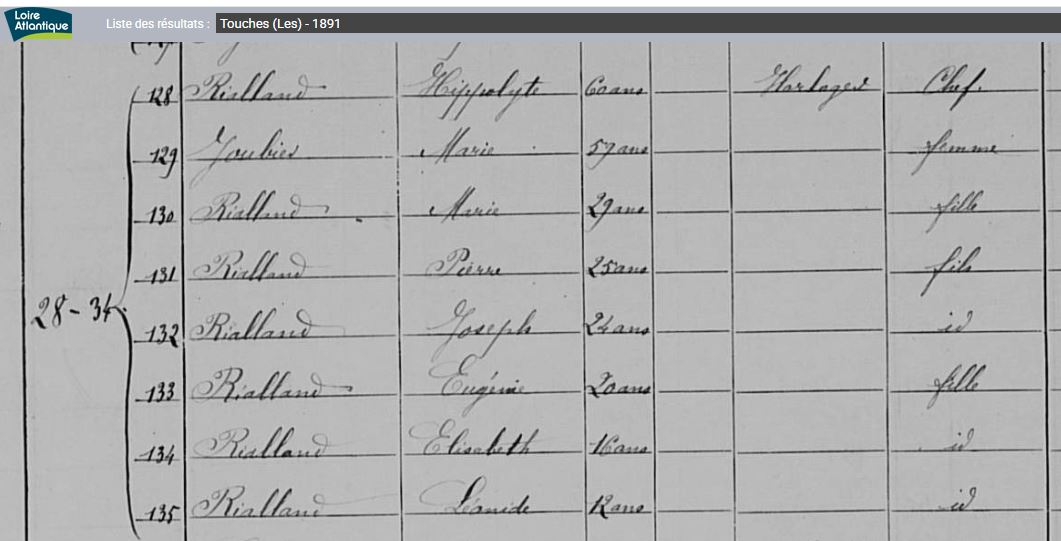 Loire
Atlantique
Liste des résultats : Touches (Les) - 1891
128 Rialland Hippolyte 60 ans Horloger Chef
129 Goubier Marie 59 ans femme
130 Rialland Marie 29 ans fille
131 Rialland Pierre 25 ans fils
28-34
132 Rialland Joseph 24 ans id
133 Rialland Eugénie 20 ans fille
134 Rialland Elisabeth 16 ans id
135 Rialland Léonide 12 ans id